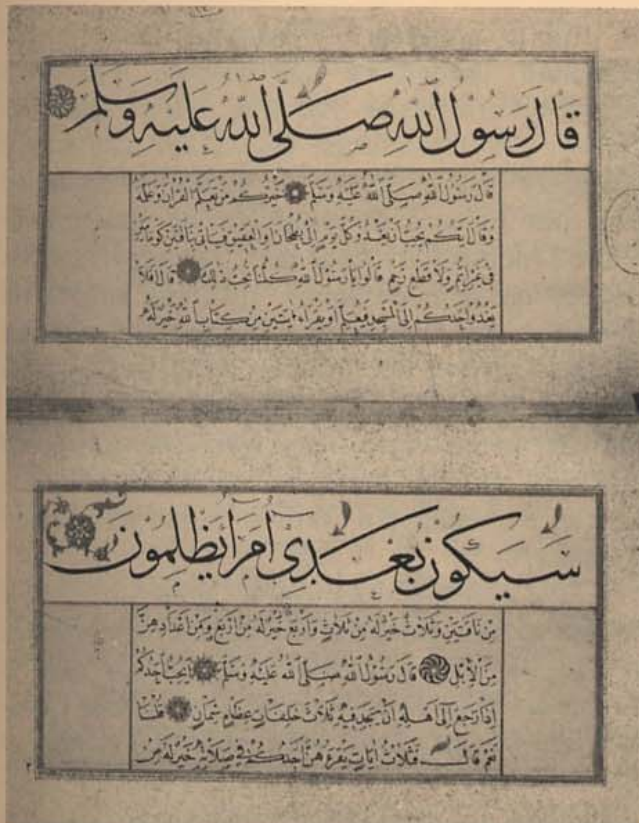 قَالَ رَسُولُ اللهِ صَلَّى اللهُ عَلَيْهِ وَسَلَّمَ
قَالَ رَسُولُ اللهِ صَلَّى اللهُ عَلَيْهِ وَسَلَّمَ خَيْرُكُمْ مَنْ تَعَلَّمَ الْقُرْآنَ وَعَلَّمَهُ
وَقَالَ اَيُّكُمْ يُحِبُّ اَنْ يَغْدُوَ كُلَّ يَوْمٍ اِلَى بُطْحَانَ اَوِ الْعَقِيقِ فَيَأْتِىَ بِنَاقَتَيْنِ كَوْمَاوَيْنِ
فِى غَيْرِ اِثْمٍ وَلَا قَطْعِ رَحِمٍ قَالُوا يَا رَسُولَ اللهِ كُلُّنَا نُحِبُّ ذٰلِكَ قَالَ اَفَلَا
يَغْدُو اَحَدُكُمْ اِلَى الْمَسْجِدِ فَيُعَلِّمَ اَوْ يَقْرَاَ آيَتَيْنِ مِنْ كِتَابِ اللهِ خَيْرٌ لَهُ
سَيَكُونُ بَعْدِى اُمَرَاءُ يَظْلِمُونَ
مِنْ نَاقَتَيْنِ وَثَلَاثٌ خَيْرٌ لَهُ مِنْ ثَلَاثٍ وَاَرْبَعٌ خَيْرٌ لَهُ مِنْ اَرْبَعٍ وَمِنْ اَعْدَادِهِنَّ
مِنَ الْاِبِلِ قَالَ رَسُولُ اللهِ صَلَّى اللهُ عَلَيْهِ وَسَلَّمَ اَيُحِبُّ اَحَدُكُمْ
اِذَا رَجَعَ اِلَى اَهْلِهِ اَنْ يَجِدَ فِيهِ ثَلَاثَ خَلِفَاتٍ عِظَامٍ سِمَانٍ قُلْنَا
نَعَمْ قَالَ فَثَلَاثُ اٰيَاتٍ يَقْرَءُهُنَّ اَحَدُكُمْ فِى صَلَاتِهِ خَيْرٌ لَهُ مِنْ